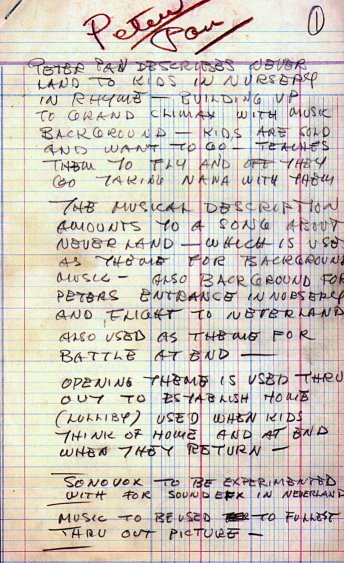 Peter Pan
1
PETER PAN DESCRIBES NEVER
LAND TO KIDS IN NURSERY
IN RHYME — BUILDING UP
TO GRAND CLIMAX WITH MUSIC
BACKGROUND — KIDS ARE SOLD
AND WANT TO GO — TEACHES
THEM TO FLY AND OFF THEY
GO TAKING NANA WITH THEM
THE MUSICAL DESCRIPTION
AMOUNTS TO A SONG ABOUT
NEVER LAND — WHICH IS USED
AS THEME FOR BACKGROUND
MUSIC — ALSO BACKGROUND FOR
PETERS ENTRANCE IN NURSERY
AND FLIGHT TO NEVERLAND
ALSO USED AS THEME FOR
BATTLE AT END —
OPENING THEME IS USED THRU
OUT TO ESTABLISH HOME
(LULLIBY) USED WHEN KIDS
THINK OF HOME AND AT END
WHEN THEY RETURN —
SONOVOX TO BE EXPERIMENTED
WITH FOR SOUND EFX IN NEVERLAND
MUSIC TO BE USED TO FULLEST
THRU OUT PICTURE —